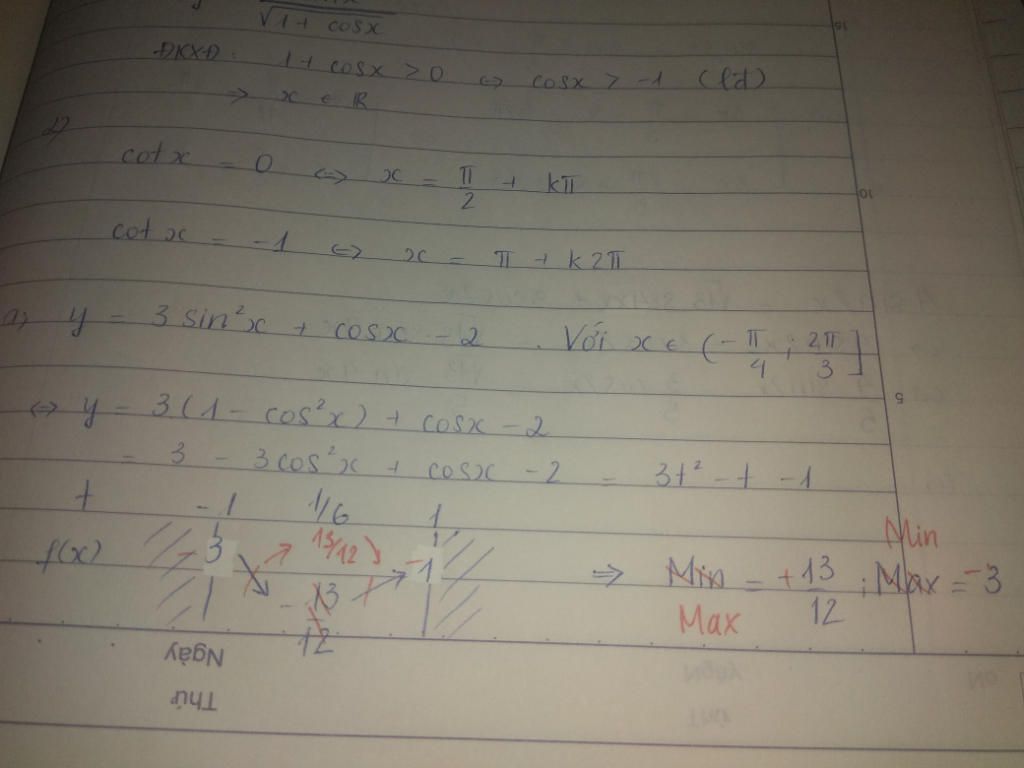 √1 + cosx
ĐKXĐ: 1 + cosx > 0 ⇔ cosx > -1 (lđ)
⇒ x ∈ ℝ
2)
cotx = 0 ⇔ x = π/2 + kπ
cotx = -1 ⇔ x = π + k2π
a) y = 3sin²x + cosx - 2 . Với x ∈ (-π/4 ; 2π/3]
⇔ y = 3(1 - cos²x) + cosx - 2
= 3 - 3cos²x + cosx - 2 = 3t² - t - 1
t -1 1/6 1
f(x) -3 13/12 -1
-13/12
⇒ Min = +13/12 ; Max = -3
Max Min
Ngày
Thứ
15
10
5